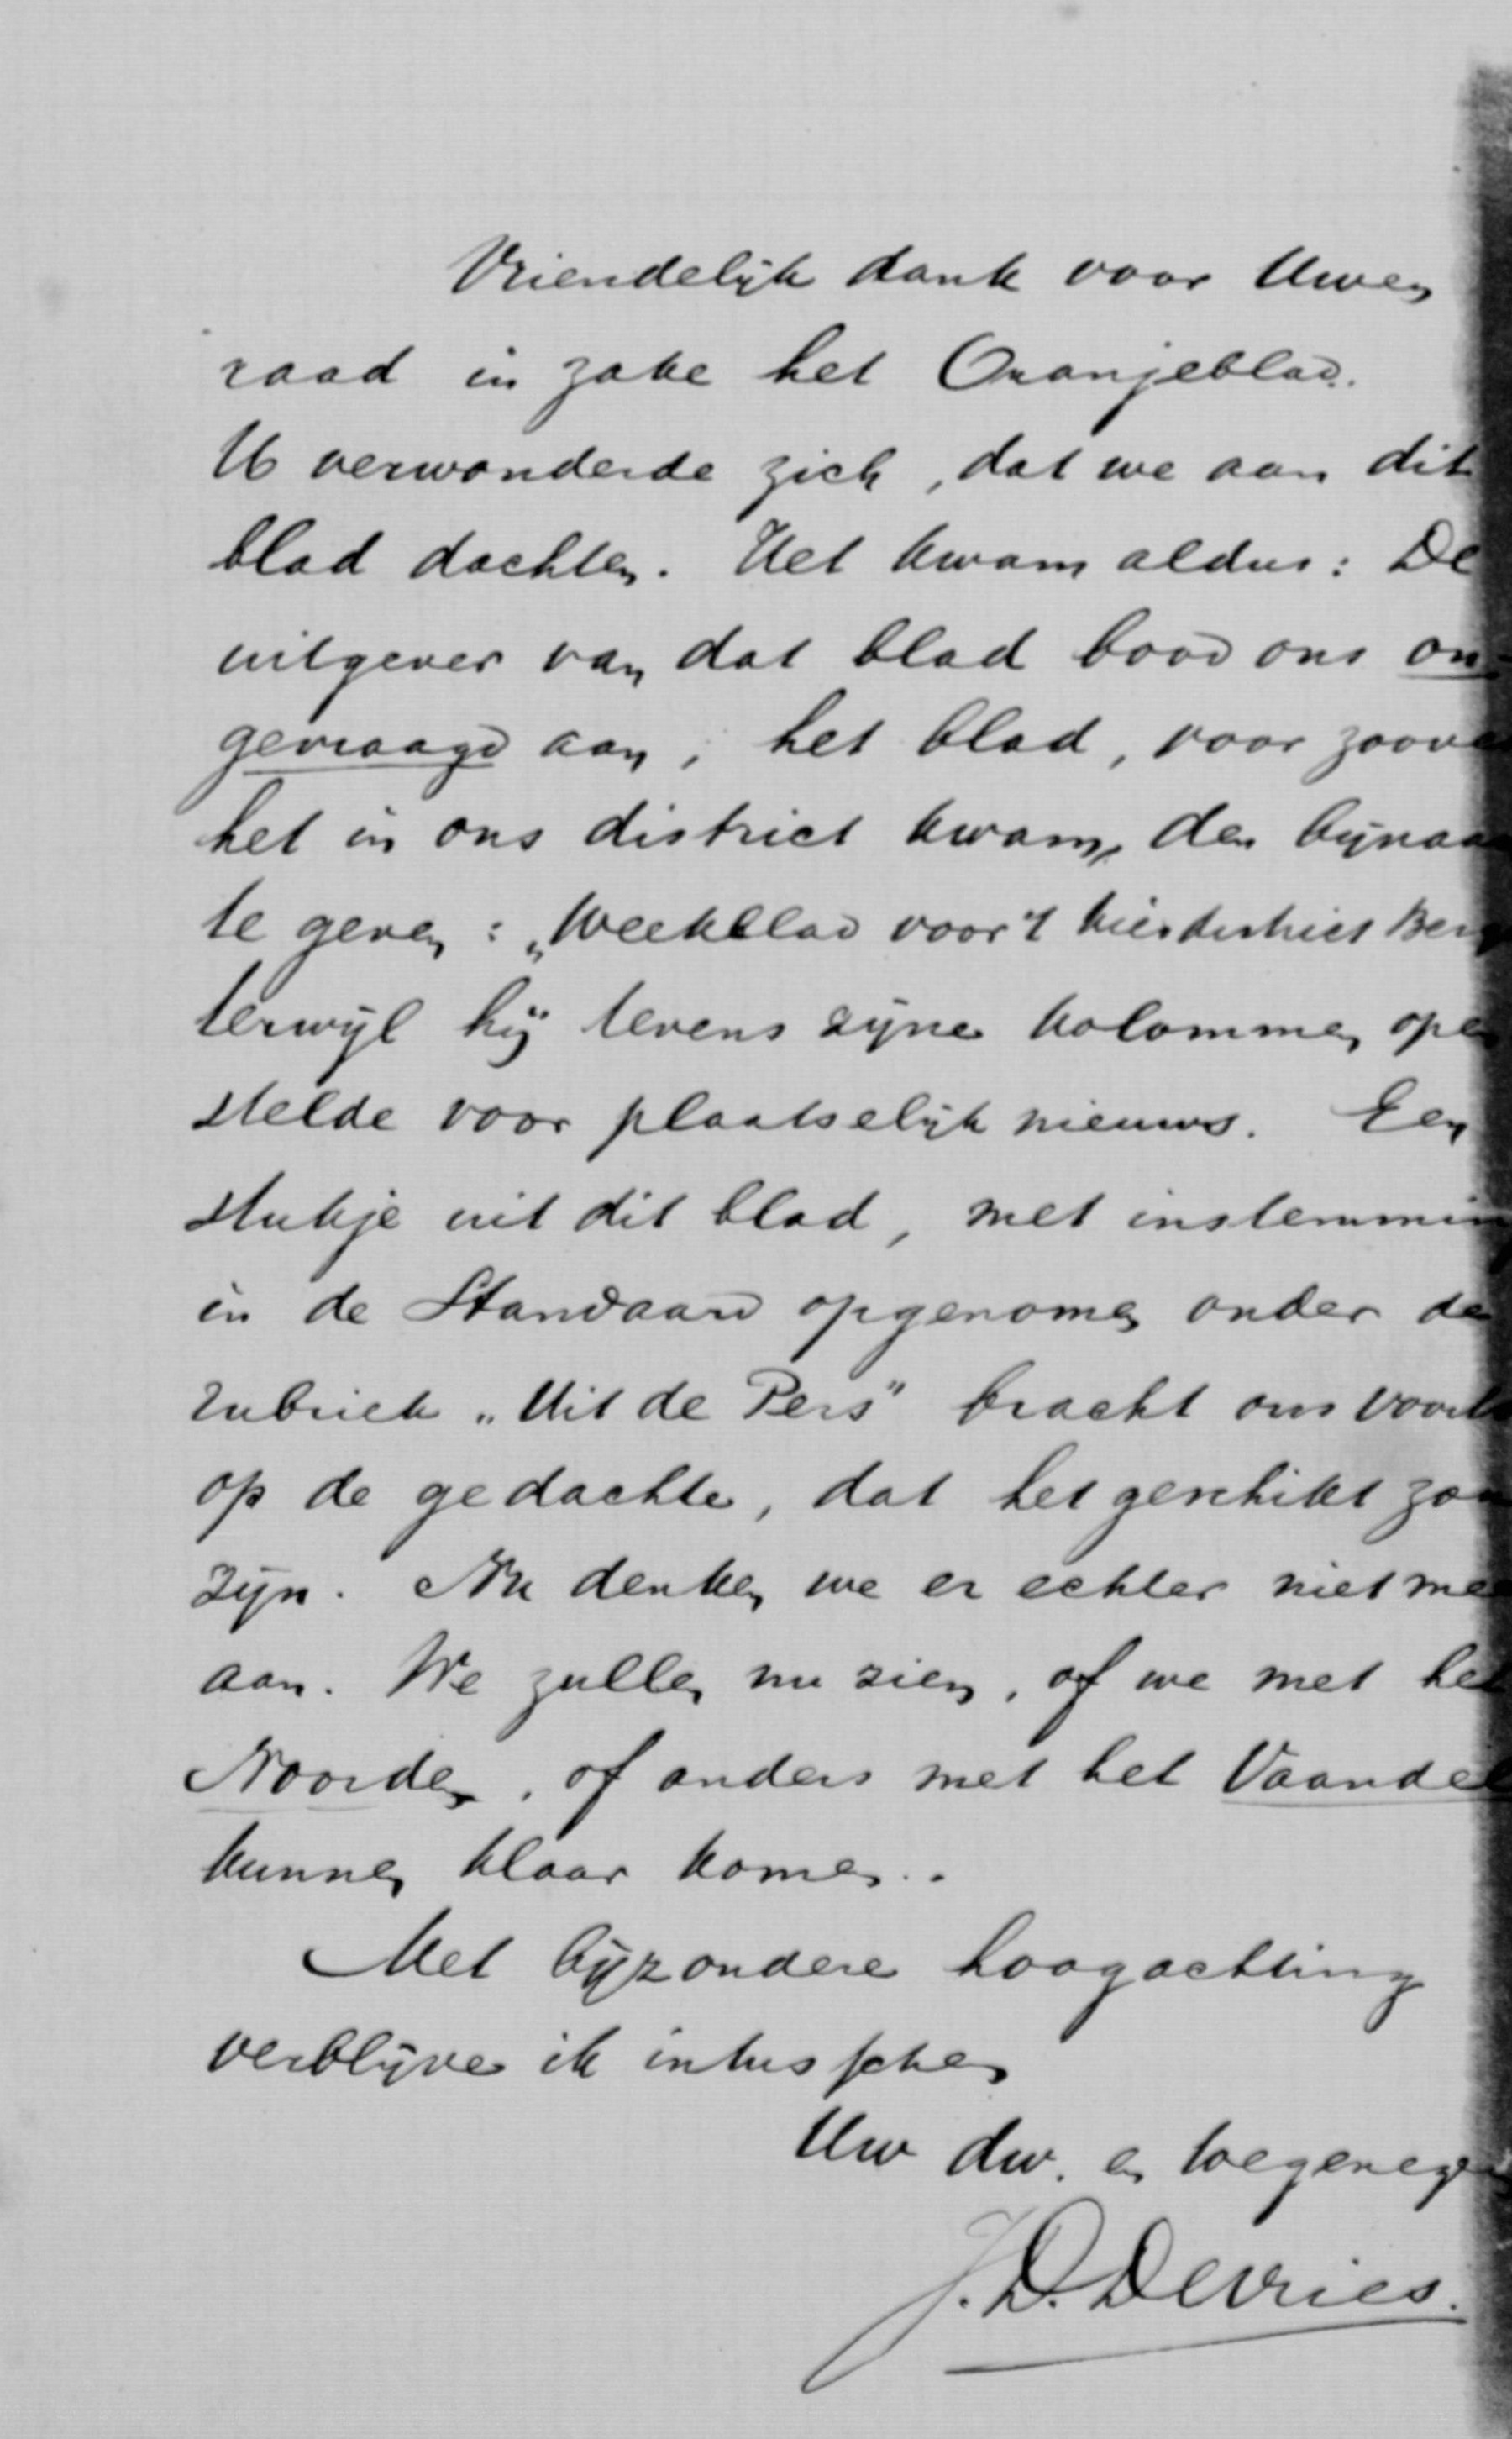 Vriendelijk dank voor Uwen
raad in zake het Oranjeblad.
U verwonderde zich, dat we aan dit
blad dachten. Het kwam aldus: De
uitgever van dat blad bood ons on-
gevraagd aan, het blad, voor zoove
het in ons district kwam, den bijnaa
te geven: „Weekblad voor 't kiesdistrict Berg
terwijl hij tevens zijne kolommen open
stelde voor plaatselijk nieuws. Een
stukje uit dit blad, met instemmin
in de Standaard opgenomen onder de
rubriek „Uit de Pers" bracht ons voorts
op de gedachte, dat het geschikt zou
zijn. Nu denken we er echter niet mee
aan. We zullen nu zien, of we met het
Noorden, of anders met het Vaandel
kunnen klaar komen.
Met bijzondere hoogachting
verblijve ik intusschen
Uw dw. en toegenegen
J. D. De Vries.